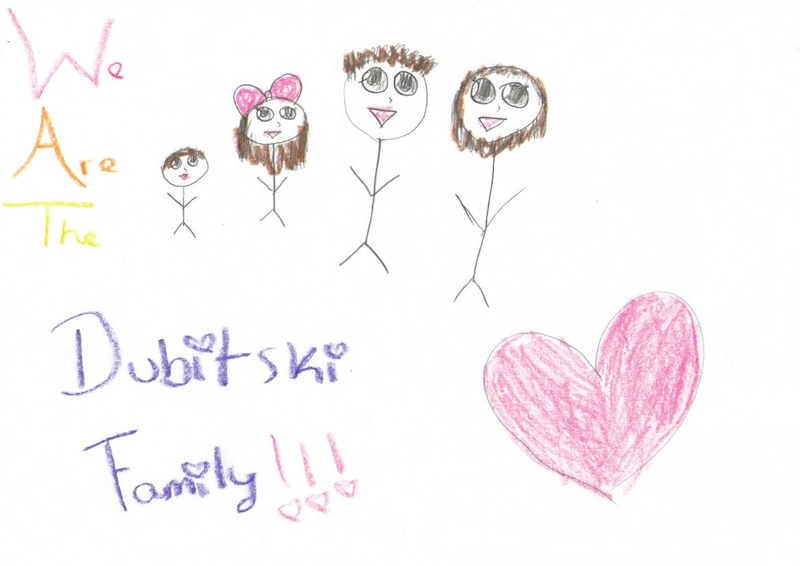 We
Are
The
Dubitski
Family!!!